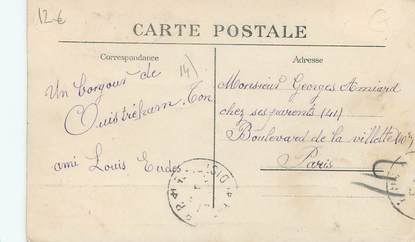 12€
14)
CARTE POSTALE
Correspondance
Adresse
Un bonjour de
Ouistreham. Ton
ami Louis Eudes
Monsieur Georges Amiard
chez ses parents (41)
Boulevard de la villette
Paris